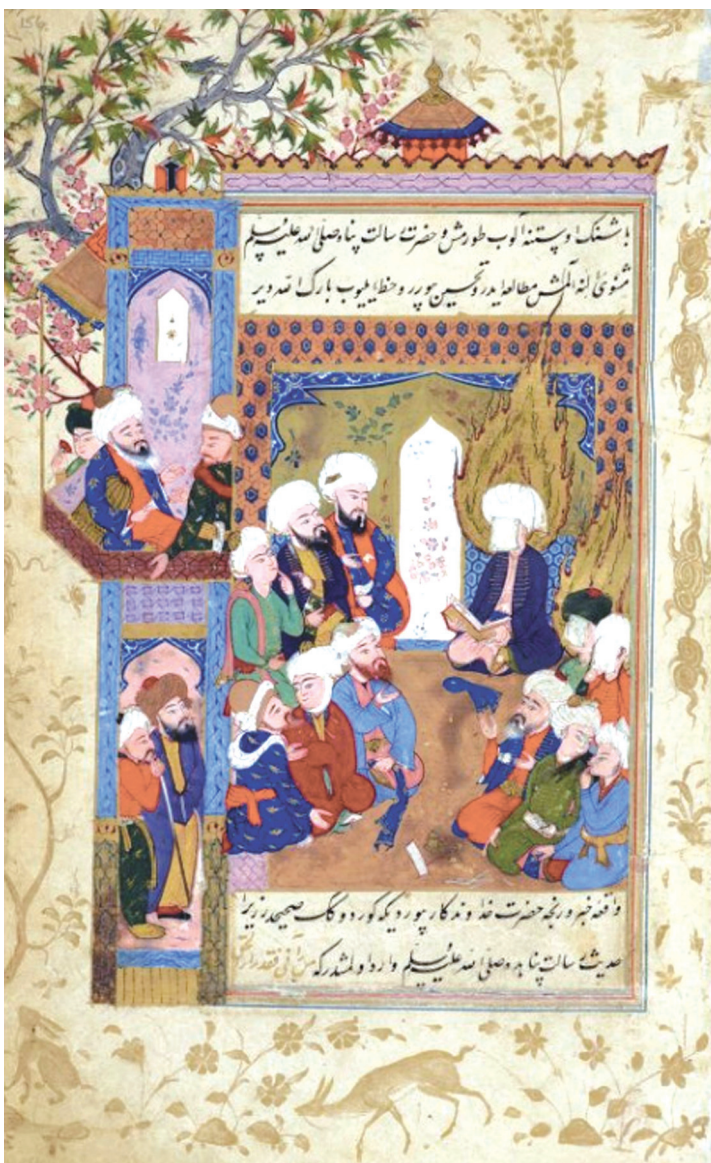 باشنک اوستنه آلوب طورمش و حضرت رسالت پناه صلی الله علیه وسلم
مثنوی الینه آلمش مطالعه ایدر و تحسین بیورر و حظ ایلیوب بارک الله دیر
واقعه خبر ورنجه حضرت خداوندکار بیوردیکه کوردوکک صحیحدر زیرا
حدیث رسالت پناهیده صلی الله علیه وسلم وارد اولمشدرکه من رآنی فقد رای